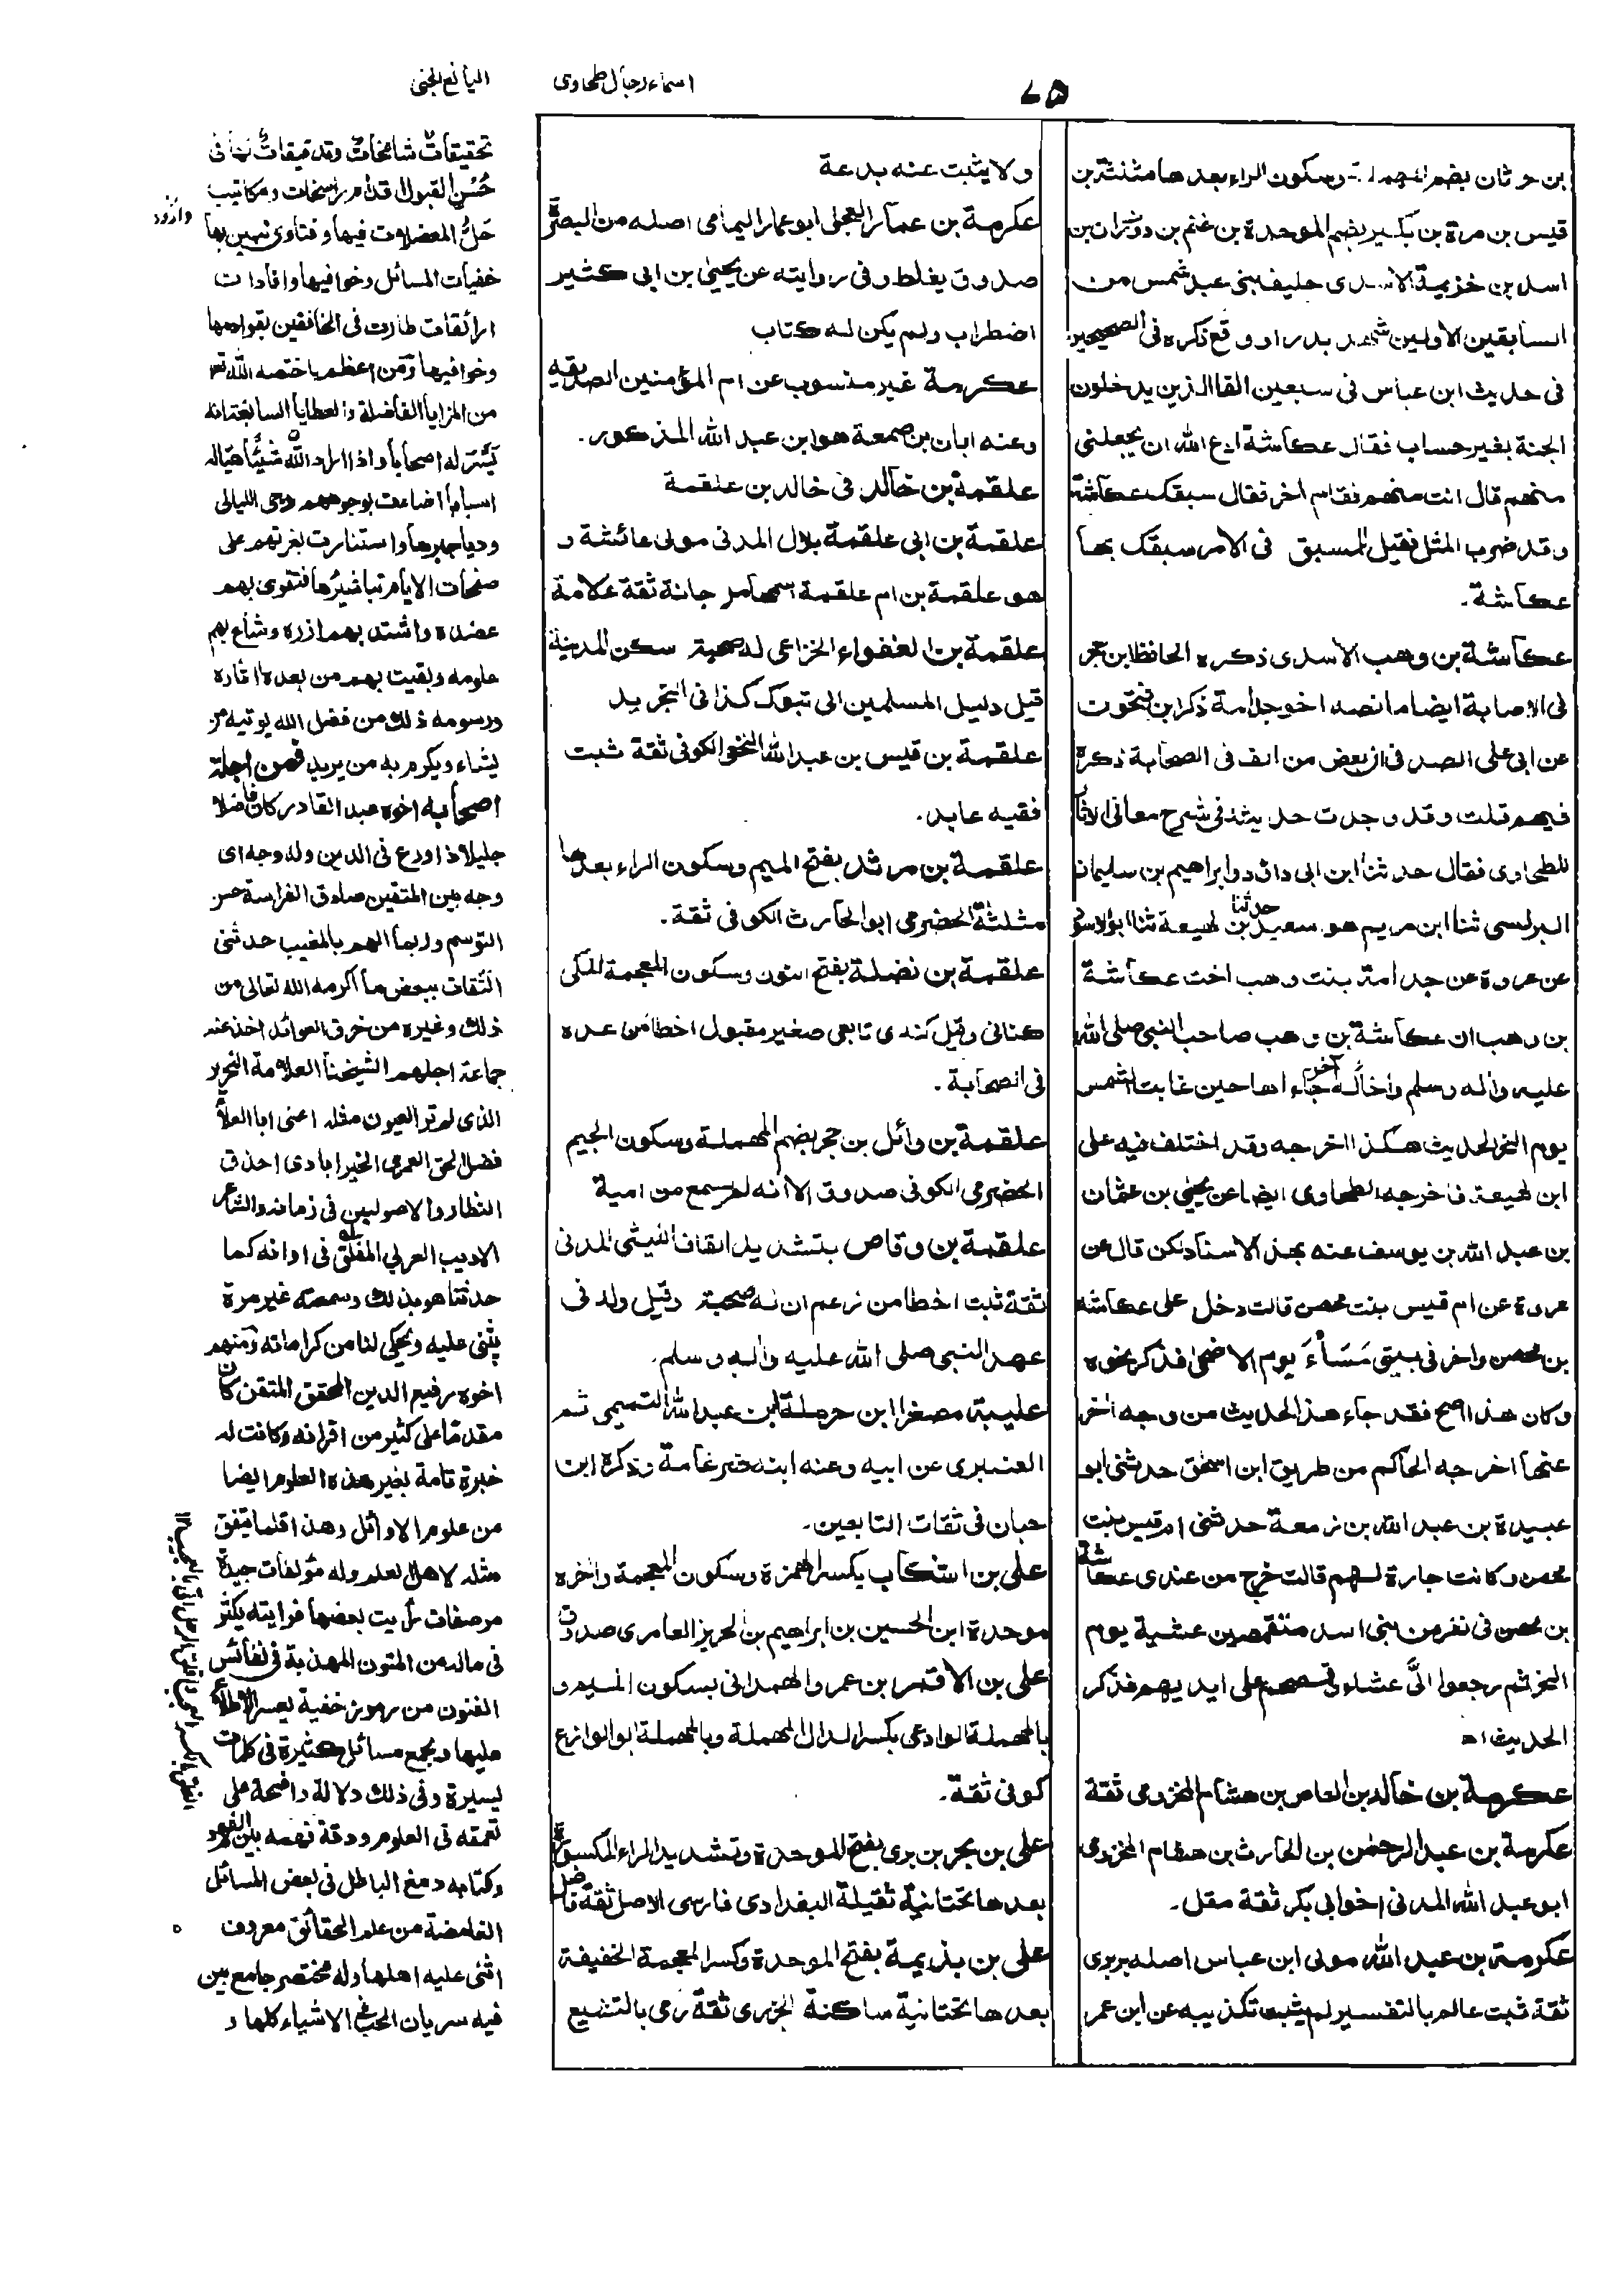 ٧٥
اسماء رجال طحاوی
اليانع الجنی
بن حرثان بضم المهملة وسكون الراء بعدها مثلثة بن
قيس بن مرة بن بكير بضم الموحدة بن غنم بن دودان بن
اسد بن خزيمة الاسدی حليف بنی عبد شمس من
السابقين الاولين شهد بدرا ووقع ذكره فی الصحيحين
فی حديث ابن عباس فی سبعين الفا الذين يدخلون
الجنة بغير حساب فقال عكاشة ادع الله ان يجعلنی
منهم قال انت منهم فقام اخر فقال سبقك عكاشة
وقد ضرب المثل فقيل للمسبق فی الامر سبقك بها
عكاشة۔
عكاشة بن وهب الاسدی ذكره الحافظ ابن حجر
فی الاصابة ايضا ما نصه اخو جدامة ذكر ابن فتحون
عن ابی علی الصدفی ان بعض من الف فی الصحابة ذكره
فيهم قلت وقد وجدت حديثه فی شرح معانی الاثار
للطحاوی فقال حدثنا ابن ابی داؤد وابراهيم بن سليمان
البرلسی ثنا ابن مريم هو سعيد حدثنا بن لهيعة ثنا ابوالاسود
عن عروة عن جدامة بنت وهب اخت عكاشة
بن وهب ان عكاشة بن وهب صاحب النبی صلی الله
عليه واله وسلم واخا له اخر جاء اها حين غابت الشمس
يوم النحر الحديث هكذا اخرجه وقد اختلف فيه علی
ابن لهيعة فاخرجه الطحاوی ايضا عن يحيی بن عثمان
بن عبد الله بن يوسف عنه بهذ الاسناد لكن قال عن
عروة عن ام قيس بنت محصن قالت دخل علی عكاشة
بن محصن واخر فی بيتی مَسَاءً يوم الاضحی فذكر نحوه
وكان هذا اصح فقد جاء هذا الحديث من وجه اخر
عنها اخرجه الحاكم من طريق ابن اسحق حدثنی ابو
عبيدة بن عبد الله بن زمعة حدثنی ام قيس بنت
محصن وكانت جارة لهم قالت خرج من عندی عكاشة
بن محصن فی نفر من بنی اسد متقمصين عشية يوم
النحر ثم رجعوا الیَّ عشاء وقمصهم علی ايديهم فذكر
الحديث اه
عكرمة بن خالد بن العاص بن هشام المخزومی ثقة
عكرمة بن عبد الرحمن بن الحارث بن هشام المخزومی
ابو عبد الله المدنی اخو ابی بكر ثقة مقل۔
عكرمة بن عبد الله مولی ابن عباس اصله بربری
ثقة ثبت عالم بالتفسير لم يثبت تكذيبه عن ابن عمر
ولا يثبت عنه بدعة
عكرمة بن عمار العجلی ابو عمار اليمامی اصله من البصرة
صدوق يغلط وفی روايته عن يحيی بن ابی كثير
اضطراب ولم يكن له كتاب
عكرمة غير منسوب عن ام المؤمنين الصديقه
وعنه ابان بن صمعة هو ابن عبد الله المذكور۔
علقمة بن خالد فی خالد بن علقمة
علقمة بن ابی علقمة بلال المدنی مولی عائشة و
هو علقمة بن ام علقمة اسمها مرجانة ثقة علامة
علقمة بن الغفواء الخزاعی له صحبة سكن المدينة
قيل دليل المسلمين الی تبوك كذا فی التجريد
علقمة بن قيس بن عبد الله النخعی الكوفی ثقة ثبت
فقيه عابد۔
علقمة بن مرثد بفتح الميم وسكون الراء بعدها
مثلثة الحضرمی ابو الحارث الكوفی ثقة۔
علقمة بن نضلة بفتح النون وسكون المعجمة المكی
كنانی وقيل كندی تابعی صغير مقبول اخطأ من عده
فی الصحابة۔
علقمة بن وائل بن حجر بضم المهملة وسكون الجيم
الحضرمی الكوفی صدوق الا انه لم يسمع من ابية
علقمة بن وقاص بتشديد القاف الليثی المدنی
ثقة ثبت اخطأ من زعم ان له صحبة وقيل ولد فی
عهد النبی صلی الله عليه واله وسلم۔
عليبة مصغرا ابن حرملة ابن عبد الله التميمی ثم
العنبری عن ابيه وعنه ابنه ضرغامة وذكره ابن
حبان فی ثقات التابعين۔
علی بن اشكاب بكسر الهمزة وسكون المعجمة واخره
موحدة ابن الحسين بن ابراهيم بن الحريز العامری صدوق
علی بن الاقمر بن عمرو الهمدانی بسكون الميم و
بالمهملة الوادعی بكسر الدال المهملة وبالمهملة ابو الوازع
كوفی ثقة۔
علی بن بحر بن بری بفتح الموحدة وتشديد الراء المكسورة
بعدها تحتانية ثقيلة البغدادی فارسی الاصل ثقة فاضل
علی بن بذيمة بفتح الموحدة وكسر المعجمة الخفيفة
بعدها تحتانية ساكنة الجزری ثقة رمی بالتشيع
تحقيقاتٌ شامخاتٌ وتدقيقاتٌ لها فی
حُسْنِ القبول اقدام راسخات ومكاتيب
حَلُّ المعضلات فيها وفتاوی تبين بها
خفيات المسائل وخوافيها وافادات
رائقات طارت فی الخافقين بقوادمها
وخوافيها وَمن اعظم ما ختصه الله تعالی
من المزايا الفاضلة والعطايا السابغة انه
يَسَّرَ له اصحابا واذا اراد الله شيئًا هيّأ له
اسبابا اضاءت بوجوههم دجی الليالی
ودياجيرها واستنارت بغرتهم علی
صفحات الايام تباشيرُها فتقوی بهم
عضده واشتد بهم ازره وشاع بهم
علومه وبقيت بهم من بعده اثاره
ورسومه ذلك من فضل الله يوتيه من
يشاء ويكرم به من يريد فمن اجلة
اصحابه اخوه عبد القادر كان فاضلا
جليلا ذا ورع فی الدين ولد وجه ای
وجه بين المتقين صادق الفراسة حسن
التوسم وربما الهم بالمغيب حدثنی
الثقات ببعض ما اكرمه الله تعالی من
ذلك وغيره من خرق العوائد اخذ عنه
جماعة اجلهم الشيخنا العلامة النحرير
الذی لم تر العيون مثله اعنی ابا العلاء
فضل الحق العمری الخيرابادی احذق
النظار والاصوليين فی زمانه والشاعر
الاديب العربی المفلق فی اوانه كما
حدثنا هو بذلك وسمعته غير مرة
يثنی عليه ويحكی لنا من كراماته ومنهم
اخوه رفيع الدين المحقق المتقن كان
مقدما علی كثير من اقرانه وكانت له
خبرة تامة بغير هذه العلوم ايضا
من علوم الاوائل وهذا قلما يتفق
مثله لاهل العلم وله مؤلفات جيدة
مرصفات رأيت بعضها فرايته يكثر
فی ماله من المتون المهذبة فی نفائس
الفنون من رموز خفية يعسر الاطلاع
عليها ويجمع مسائل كثيرة فی كلمات
يسيرة وفی ذلك دلالة واضحة علی
تعمقه فی العلوم ودقة فهمه بين الفهوم
وكتابه دمغ الباطل فی بعض المسائل
الغامضة من علم الحقائق معروف
اثنی عليه اهلها وله مختصر جامع بين
فيه سريان الحب فی الاشياء كلها و